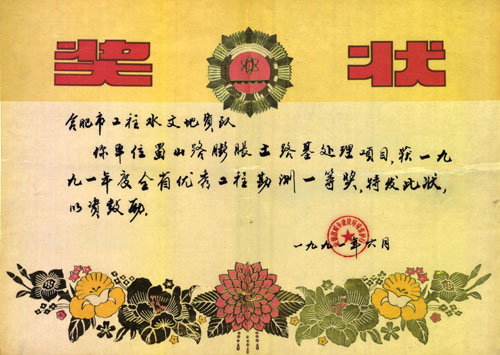 奖 状
合肥市工程水文地质队
你单位蜀山路膨胀土路基处理项目，获一九
九一年度全省优秀工程勘测一等奖，特发此状，
以资鼓励。
一九九一年六月